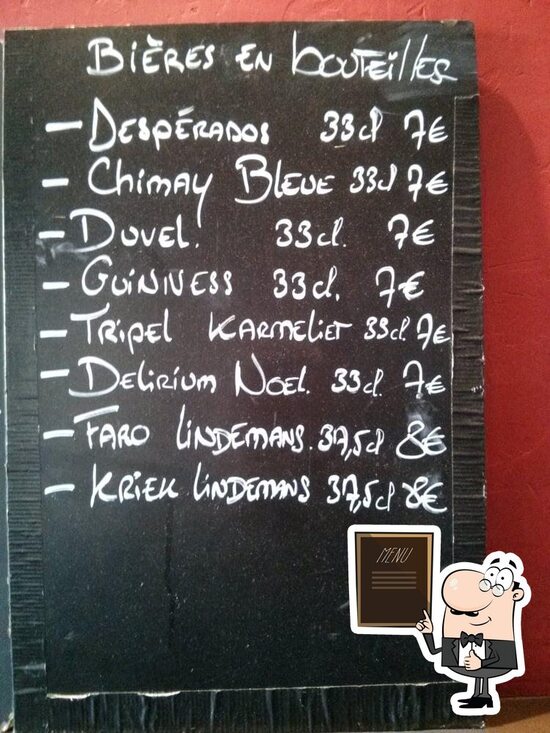 BIÈRES EN bouteilles
- DESPÉRADOS 33cl 7€
- Chimay BLEUE 33cl 7€
- DUVEL. 33cl. 7€
- GUINNESS 33cl. 7€
- TRIPEL KARMELIET 33cl. 7€
- DELIRIUM NOEL. 33cl. 7€
- FARO LINDEMANS. 37,5cl 8€
- KRIEK LINDEMANS 37,5cl 8€
MENU